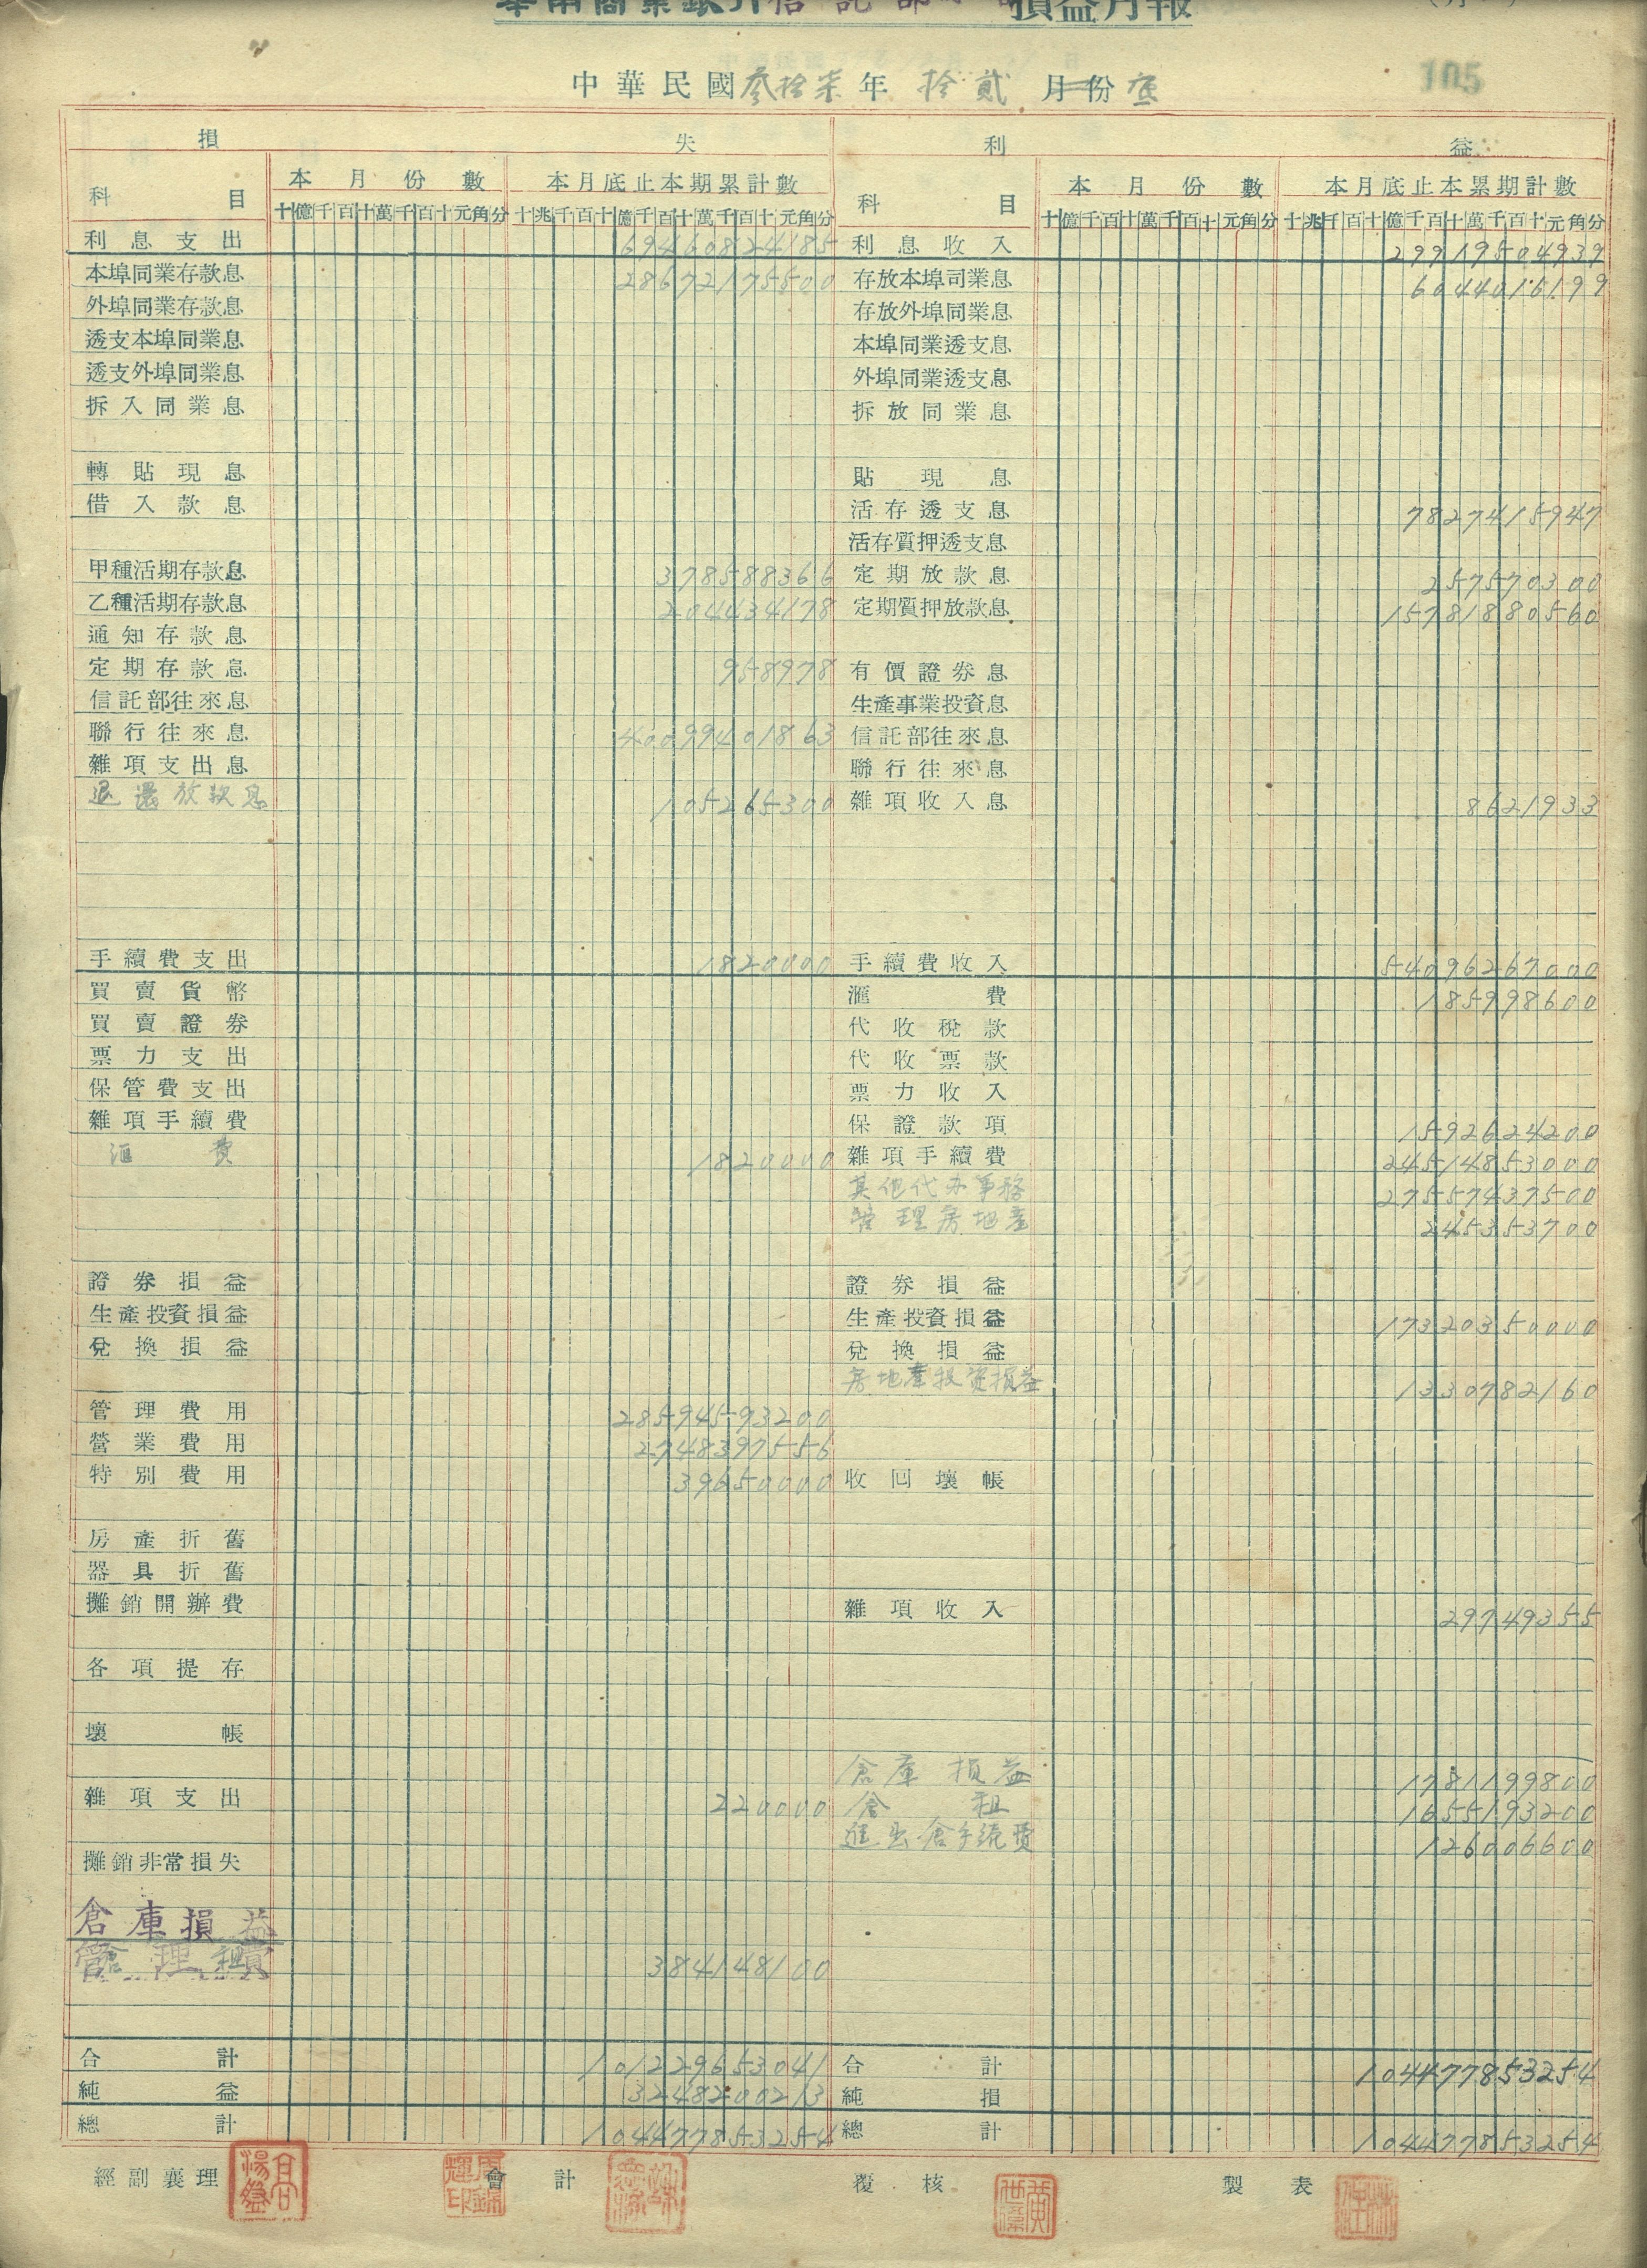 華南商業銀行信託部 損益月報
中華民國叁拾柒年 拾貳 月份 底
105
損 失 利 益
科 目 本月份數 本月底止本期累計數 科 目 本月份數 本月底止本累期計數
十億千百十萬千百十元角分 十兆千百十億千百十萬千百十元角分 十億千百十萬千百十元角分 十兆千百十億千百十萬千百十元角分
利息支出 69460824185 利息收入 29919504939
本埠同業存款息 28672175500 存放本埠司業息 6044016199
外埠同業存款息 存放外埠同業息
透支本埠同業息 本埠同業透支息
透支外埠同業息 外埠同業透支息
拆入同業息 拆放同業息
轉貼現息 貼現息
借入款息 活存透支息 7827415947
活存質押透支息
甲種活期存款息 378588366 定期放款息 257570300
乙種活期存款息 204434178 定期質押放款息 15781880560
通知存款息
定期存款息 958978 有價證券息
信託部往來息 生產事業投資息
聯行往來息 40099401863 信託部往來息
雜項支出息 聯行往來息
退還放款息 105265300 雜項收入息 8621933
手續費支出 1820000 手續費收入 54096267000
買賣貨幣 滙費 185998600
買賣證券 代收稅款
票力支出 代收票款
保管費支出 票力收入
雜項手續費 保證款項 1592624200
滙費 1820000 雜項手續費 24514853000
其他代办事務 27557437500
管理房地產 245353700
證券損益 證券損益
生產投資損益 生產投資損益 17320350000
兌換損益 兌換損益
房地產投資損益 1330782160
管理費用 28594593200
營業費用 2748397556
特別費用 39650000 收回壞帳
房產折舊
器具折舊
攤銷開辦費 雜項收入 29749355
各項提存
壞帳
倉庫損益 1781199800
雜項支出 220000 倉租 1655193200
進出倉手續費 126006600
攤銷非常損失
倉庫損益
384148100
合計 101229653041 合計 104477853254
純益 3248200213 純損
總計 104477853254 總計 104477853254
經副襄理 會計 覆核 製表